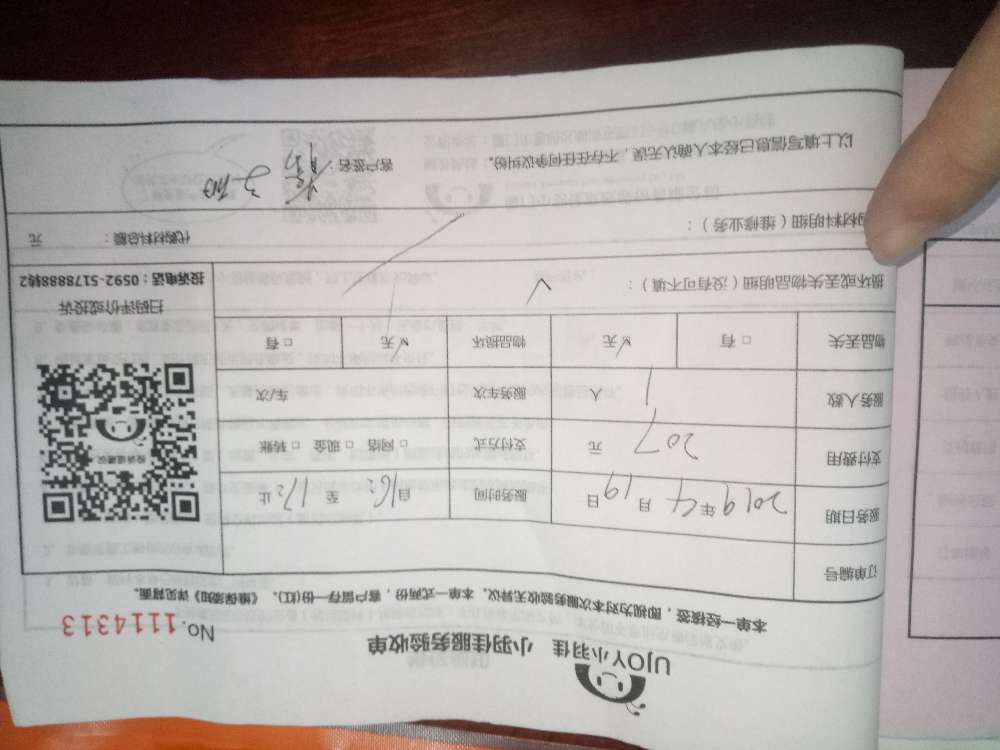 UJOY小羽佳 小羽佳服务验收单
No.1114313
本单一经接签，即视为对本次服务验收无异议。本单一式两份，客户留存一份(红)。《维保须知》详见背面。
订单编号
服务日期 2019年4月19日 服务时间 自16:2 至17:2 止
支付费用 207 元 支付方式 □ 网络 □ 现金 □ 转账
服务人数 1 人 服务车次 车/次
物品丢失 □ 有 □ 无 物品损坏 □ 无 □ 有
扫码评价或投诉
投诉电话：0592-5178888转2
损坏或丢失物品明细（没有可不填）：
购材料明细（维修业务）：
代购材料总额： 元
以上填写信息已经本人确认无误，不存在任何争议纠纷。 客户签名：